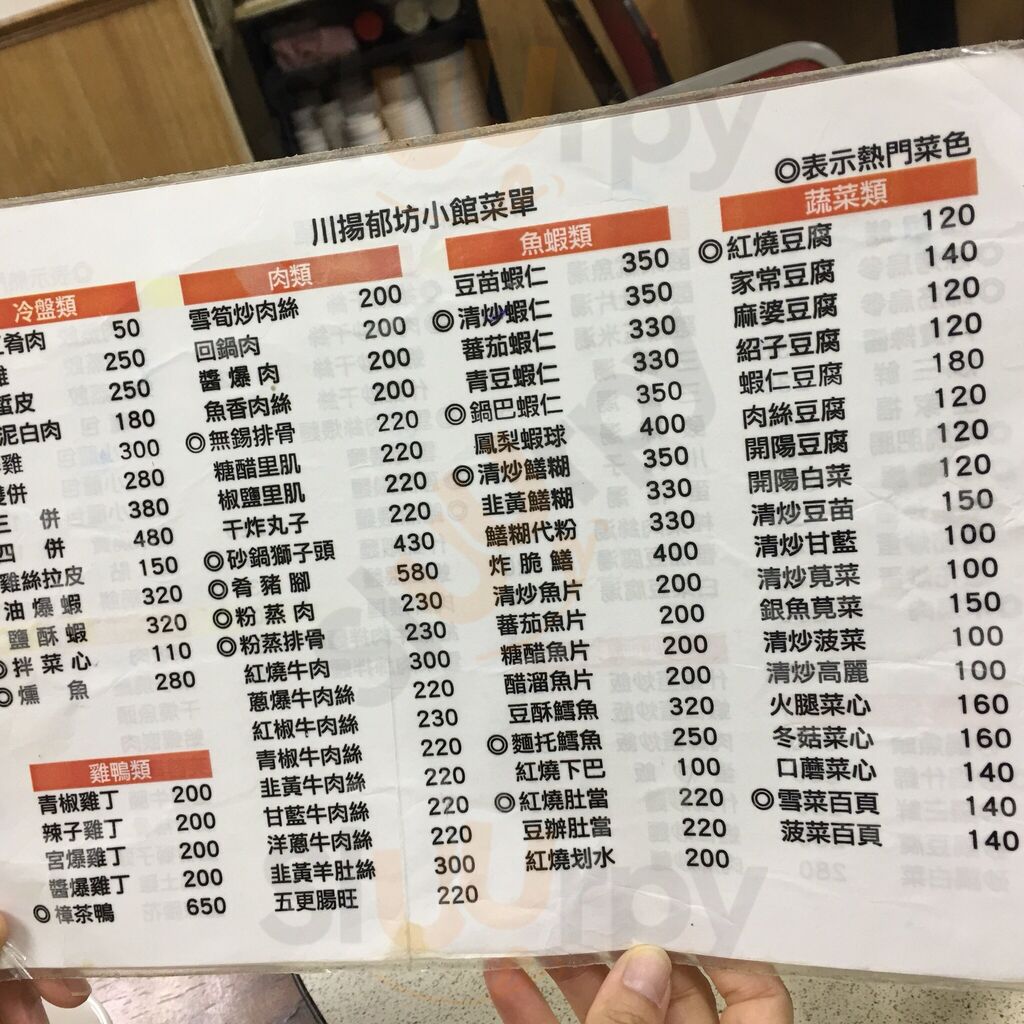 ◎表示熱門菜色
川揚郁坊小館菜單
冷盤類
肴肉 50
250
蜇皮 250
泥白肉 180
雞 300
併 280
三併 380
四併 480
雞絲拉皮 150
油爆蝦 320
鹽酥蝦 320
◎拌菜心 110
◎燻魚 280
雞鴨類
青椒雞丁 200
辣子雞丁 200
宮爆雞丁 200
醬爆雞丁 200
◎樟茶鴨 650
肉類
雪筍炒肉絲 200
回鍋肉 200
醬爆肉 200
魚香肉絲 200
◎無錫排骨 220
糖醋里肌 220
椒鹽里肌 220
干炸丸子 220
◎砂鍋獅子頭 430
◎肴豬腳 580
◎粉蒸肉 230
◎粉蒸排骨 230
紅燒牛肉 300
蔥爆牛肉絲 220
紅椒牛肉絲 230
青椒牛肉絲 220
韭黃牛肉絲 220
甘藍牛肉絲 220
洋蔥牛肉絲 220
韭黃羊肚絲 300
五更腸旺 220
魚蝦類
豆苗蝦仁 350
◎清炒蝦仁 350
蕃茄蝦仁 330
青豆蝦仁 330
◎鍋巴蝦仁 350
鳳梨蝦球 400
◎清炒鱔糊 350
韭黃鱔糊 330
鱔糊代粉 330
炸脆鱔 400
清炒魚片 200
蕃茄魚片 200
糖醋魚片 200
醋溜魚片 200
豆酥鱈魚 320
◎麵托鱈魚 250
紅燒下巴 100
◎紅燒肚當 220
豆瓣肚當 220
紅燒划水 200
蔬菜類
◎紅燒豆腐 120
家常豆腐 140
麻婆豆腐 120
紹子豆腐 120
蝦仁豆腐 180
肉絲豆腐 120
開陽豆腐 120
開陽白菜 120
清炒豆苗 150
清炒甘藍 100
清炒莧菜 100
銀魚莧菜 150
清炒菠菜 100
清炒高麗 100
火腿菜心 160
冬菇菜心 160
口蘑菜心 140
◎雪菜百頁 140
菠菜百頁 140